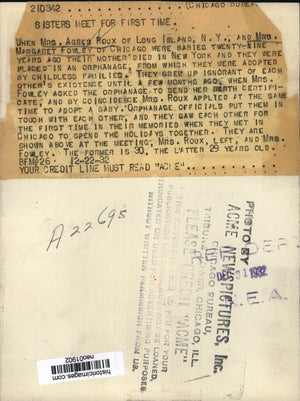 210342 (CHICAGO BUREAU
SISTERS MEET FOR FIRST TIME.
WHEN MRS. AGNES ROUX OF LONG ISLAND, N. Y., AND MRS.
MARGARET FOWLEY OF CHICAGO WERE BABIES TWENTY-NINE
YEARS AGO THEIR MOTHER DIED IN NEW YORK AND THEY WERE
PLACED IN AN ORPHANAGE, FROM WHICH THEY WERE ADOPTED
BY CHILDLESS FAMILIES. THEY GREW UP IGNORANT OF EACH
OTHER'S EXISTENCE UNTIL A FEW MONTHS AGO, WHEN MRS.
FOWLEY ASKED THE ORPHANAGE TO SEND HER BIRTH CERTIFI-
CATE, AND BY COINCIDENCE MRS. ROUX APPLIED AT THE SAME
TIME TO ADOPT A BABY. ORPHANAGE OFFICIALS PUT THEM IN
TOUCH WITH EACH OTHER, AND THEY SAW EACH OTHER FOR
THE FIRST TIME IN THEIR MEMORIES WHEN THEY MET IN
CHICAGO TO SPEND THE HOLIDAYS TOGETHER. THEY ARE
SHOWN ABOVE AT THE MEETING, MRS. ROUX, LEFT, AND MRS.
FOWLEY. THE FORMER IS 30, THE LATTER 29 YEARS OLD.
12-22-32
YOUR CREDIT LINE MUST READ "ACME"
A22695
PHOTO BY
ACME NEWSPICTURES, Inc.
CHICAGO BUREAU,
TRIBUNE TOWER, CHICAGO, ILL.
PLEASE CREDIT "ACME"
1932
N.E.A.
WITHOUT WRITTEN PERMISSION FROM US.
historicimages.com
neo01902